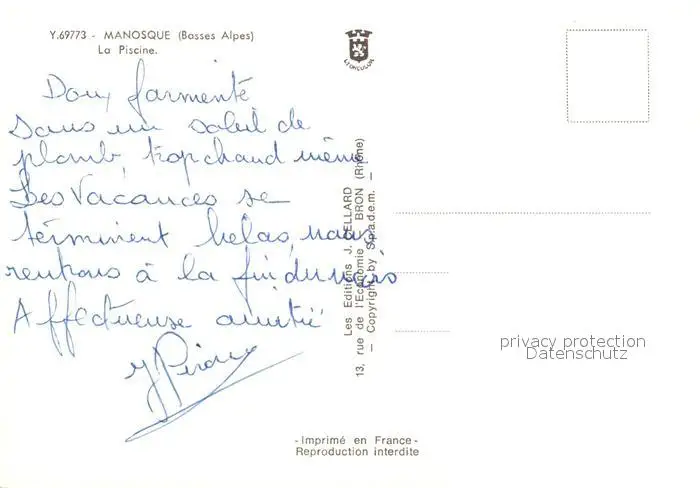 Y.69773 - MANOSQUE (Basses Alpes)
La Piscine.
LYONCOLOR
Doux farmienté
Sous un soleil de
plomb, trop chaud même
Les Vacances se
terminent helas, nous
rentrons à la fin du mois
Affectueuse amitié
Les Editions J. CELLARD
13, rue de l'Economie BRON (Rhône)
— Copyright by S.p.a.d.e.m. —
privacy protection
Datenschutz
-Imprimé en France-
Reproduction interdite